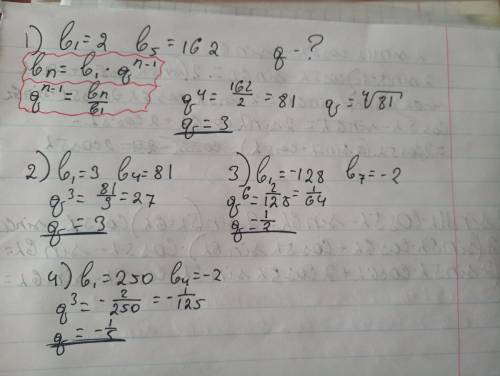 1) b₁=2 b₅=162 q-?
bₙ=b₁·qⁿ⁻¹
qⁿ⁻¹=bₙ/b₁
q⁴=162/2=81 q=⁴√81
q=3
2) b₁=3 b₄=81
q³=81/3=27
q=3
3) b₁=-128 b₇=-2
q⁶=2/128=1/64
q=1/2
4) b₁=250 b₄=-2
q³=-2/250=-1/125
q=-1/5